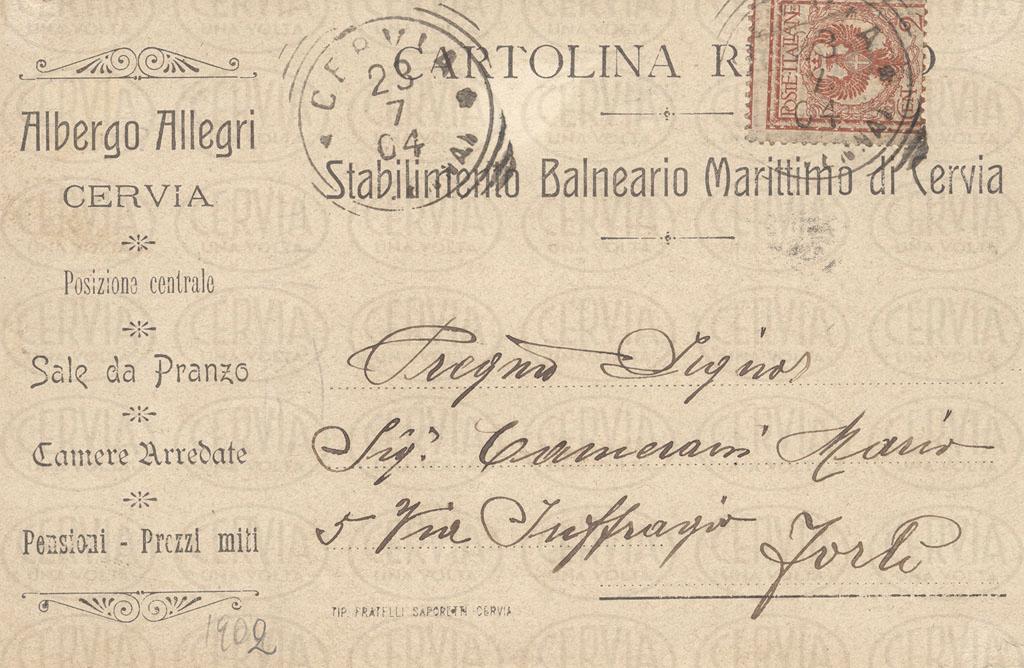 Albergo Allegri
CERVIA
Posizione centrale
Sale da Pranzo
Camere Arredate
Pensioni - Prezzi miti
1902
CERVIA
23
7
04
CARTOLINA
POSTE ITALIANE
Stabilimento Balneario Marittimo di Cervia
Pregmo Signor
Sigr. Camerani Mario
5 Via Suffragio
Forlì
TIP. FRATELLI SAPORETTI CERVIA